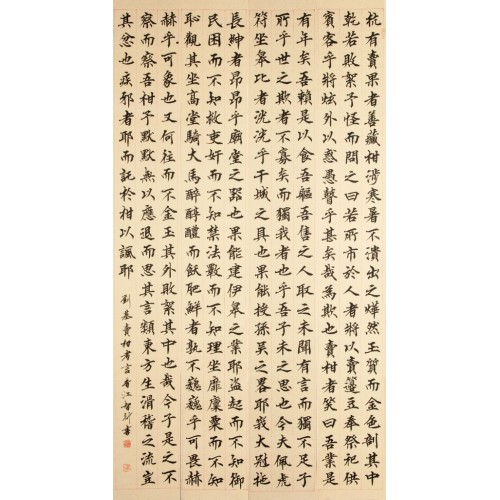 杭有賣果者善藏柑涉寒暑不潰出之燁然玉質而金色剖其中
乾若敗絮予怪而問之曰若所市於人者將以賣籩豆奉祭祀供
賓客乎將炫外以惑愚瞽乎甚矣哉為欺也賣柑者笑曰吾業是
有年矣吾賴是以食吾軀吾售之人取之未聞有言而獨不足子
所乎世之欺者不寡矣而獨我者也乎吾子未之思也今夫佩虎
符坐皋比者洸洸乎干城之具也果能授孫吳之畧耶我大冠拖
長紳者昂昂乎廟堂之器也果能建伊皋之業耶盜起而不知御
民困而不知救吏奸而不知禁法斁而不知理坐靡廩粟而不知
恥觀其坐高堂騎大馬醉醇醲而飫肥鮮者孰不巍巍乎可畏赫
赫乎可象也又何往而不金玉其外敗絮其中也哉今子是之不
察而察吾柑予默默無以應退而思其言類東方生滑稽之流豈
其忿也疾邪者耶而託於柑以諷耶 劉基賣柑者言 香江